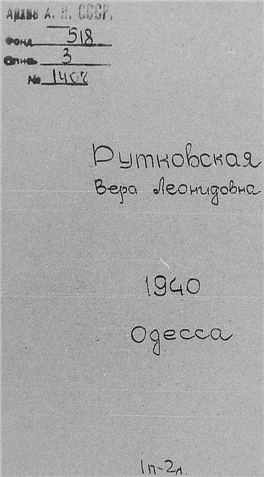 Архив А. Н. СССР.
Фонд 518
Опись 3
№
Рутковская
Вера Леонидовна
1940
Одесса
1п-2л.